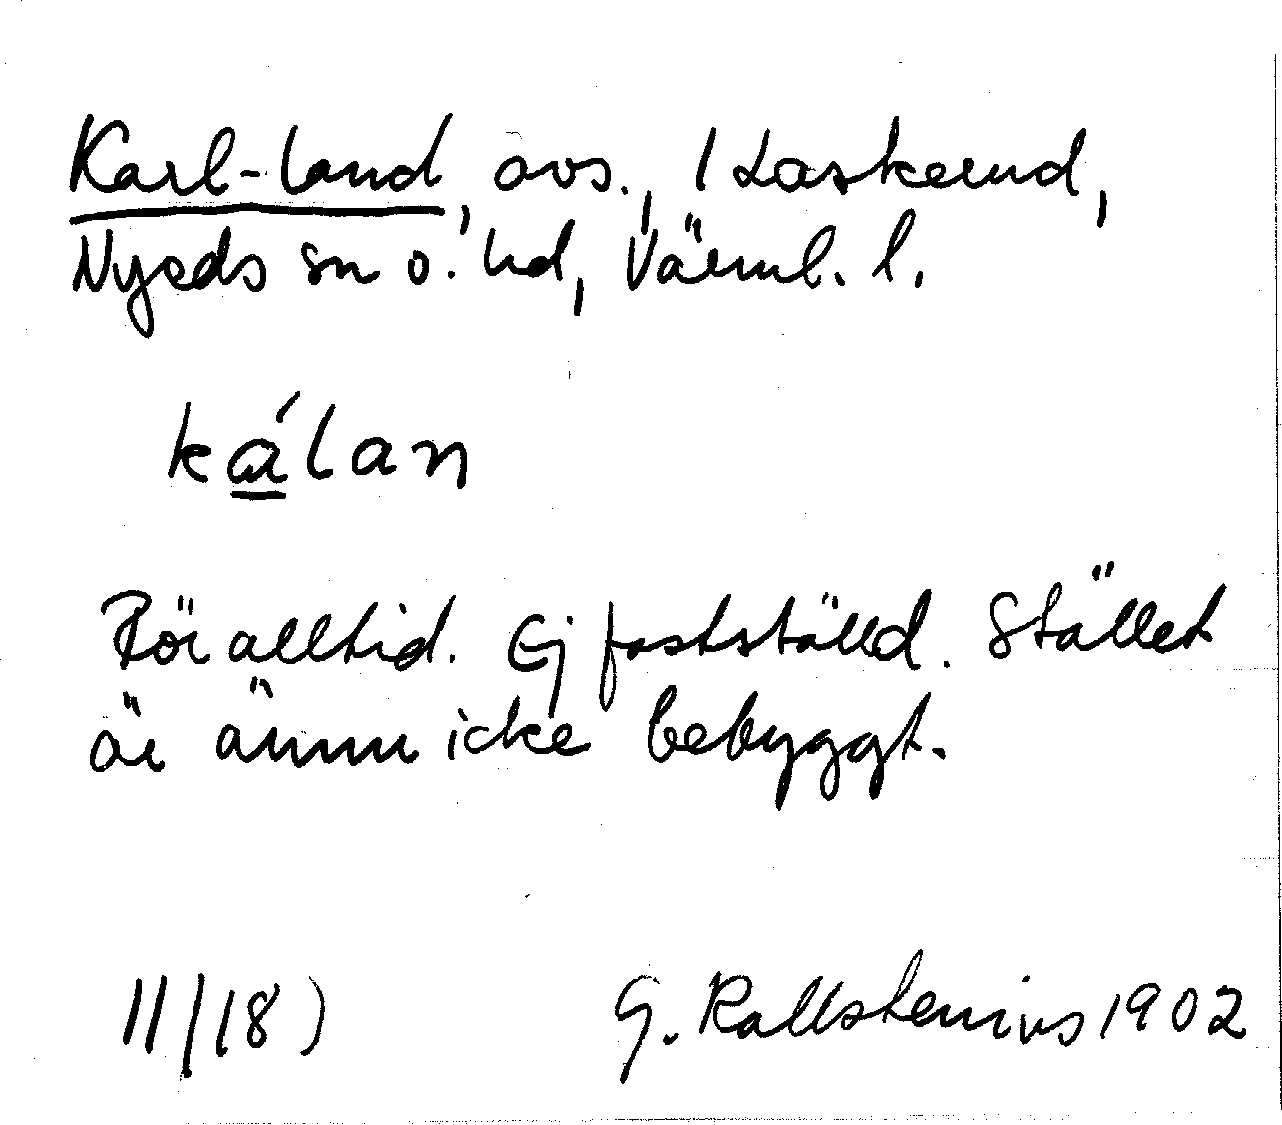 Karl-land, avs., 1 Laskerud,
Nyeds sn o. hd, Värml. l.
kálan
För alltid. Ej fastställd. Stället
är ännu icke bebyggt.
11/18) G. Kallstenius 1902